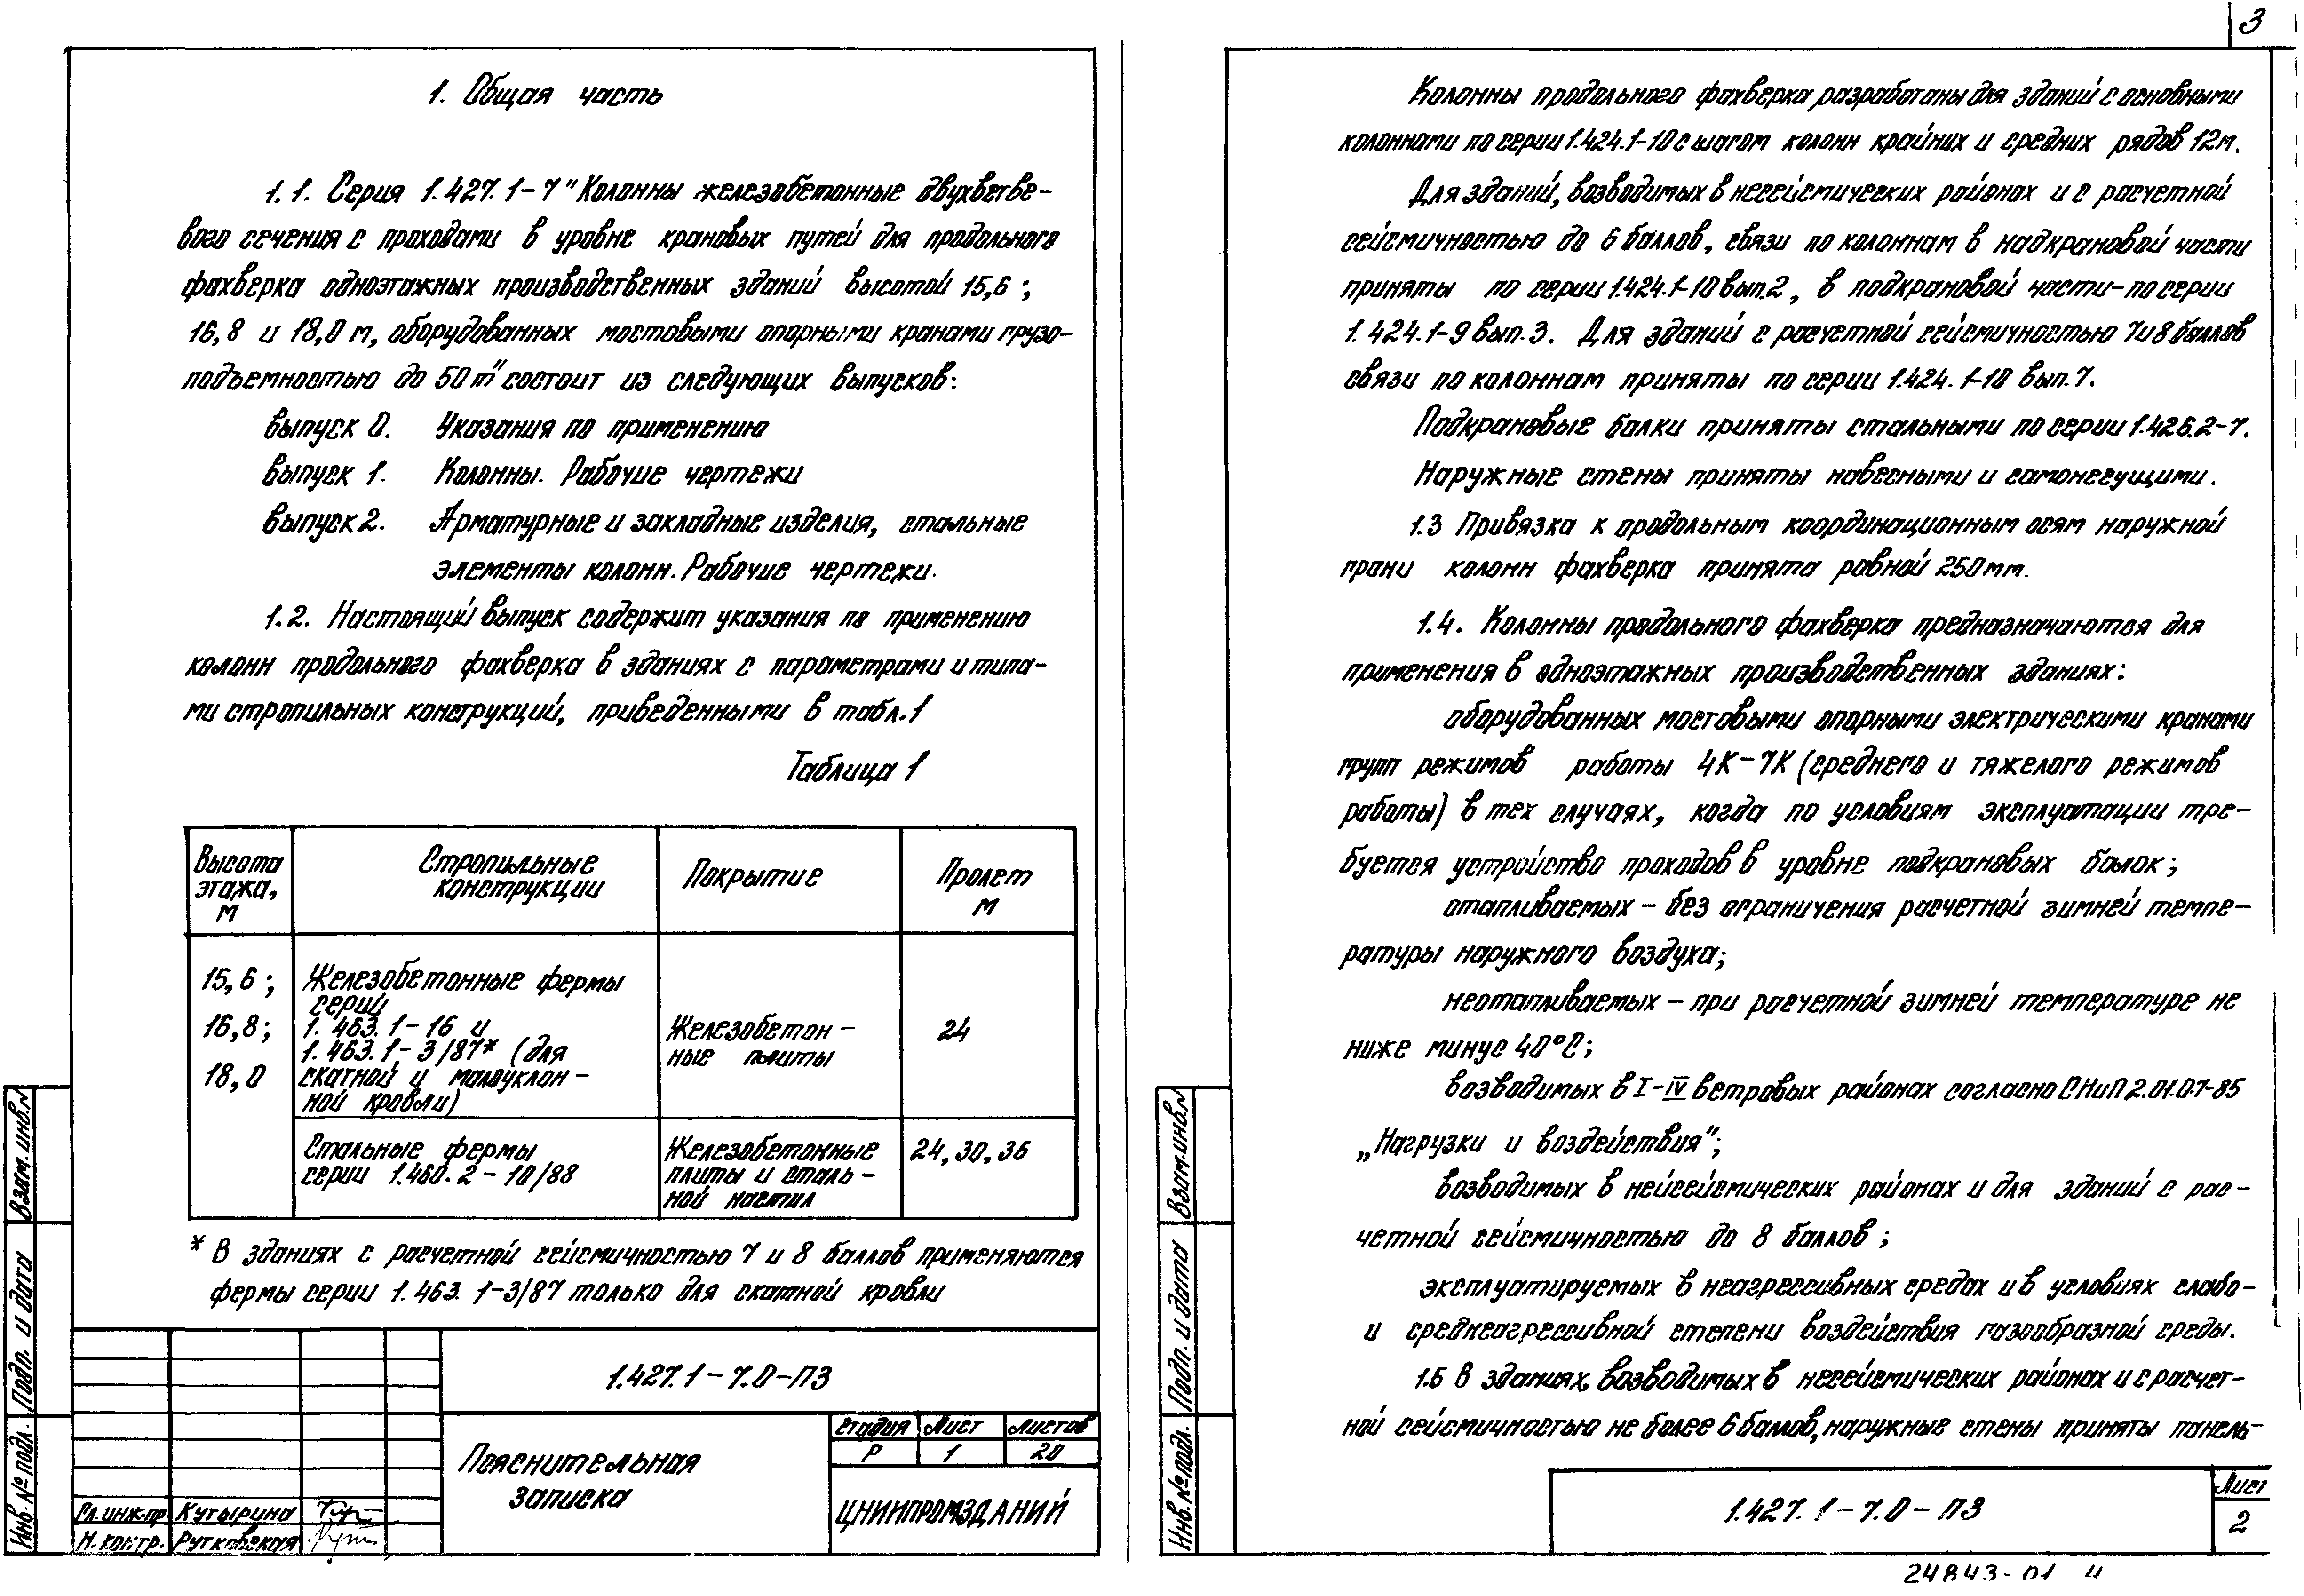 3
1. Общая часть
1.1. Серия 1.427.1-7 "Колонны железобетонные двухветве-
вого сечения с проходами в уровне крановых путей для продольного
фахверка одноэтажных производственных зданий высотой 15,6;
16,8 и 18,0 м, оборудованных мостовыми опорными кранами грузо-
подъемностью до 50 т" состоит из следующих выпусков:
выпуск 0. Указания по применению
выпуск 1. Колонны. Рабочие чертежи
выпуск 2. Арматурные и закладные изделия, стальные
элементы колонн. Рабочие чертежи.
1.2. Настоящий выпуск содержит указания по применению
колонн продольного фахверка в зданиях с параметрами и типа-
ми стропильных конструкций, приведенными в табл.1
Таблица 1
Высота этажа, м
Стропильные конструкции
Покрытие
Пролет м
15,6;
16,8;
18,0
Железобетонные фермы
серий
1.463.1-16 и
1.463.1-3/87* (для
скатной и малоуклон-
ной кровли)
Железобетон-
ные плиты
24
Стальные фермы
серии 1.460.2-10/88
Железобетонные
плиты и сталь-
ной настил
24, 30, 36
* В зданиях с расчетной сейсмичностью 7 и 8 баллов применяются
фермы серии 1.463.1-3/87 только для скатной кровли
1.427.1-7.0-ПЗ
Пояснительная
записка
стадия Лист Листов
Р 1 20
ЦНИИПРОМЗДАНИЙ
Гл. инж. пр. Кутырина
Н. контр. Рутковская
Инв. № подл. Подп. и дата Взам. инв. №
Колонны продольного фахверка разработаны для зданий с основными
колоннами по серии 1.424.1-10 с шагом колонн крайних и средних рядов 12м.
Для зданий, возводимых в несейсмических районах и с расчетной
сейсмичностью до 6 баллов, связи по колоннам в надкрановой части
приняты по серии 1.424.1-10 вып.2, в подкрановой части-по серии
1.424.1-9 вып.3. Для зданий с расчетной сейсмичностью 7 и 8 баллов
связи по колоннам приняты по серии 1.424.1-10 вып.7.
Подкрановые балки приняты стальными по серии 1.426.2-7.
Наружные стены приняты навесными и самонесущими.
1.3 Привязка к продольным координационным осям наружной
грани колонн фахверка принята равной 250мм.
1.4. Колонны продольного фахверка предназначаются для
применения в одноэтажных производственных зданиях:
оборудованных мостовыми опорными электрическими кранами
групп режимов работы 4К-7К (среднего и тяжелого режимов
работы) в тех случаях, когда по условиям эксплуатации тре-
буется устройство проходов в уровне подкрановых балок;
отапливаемых - без ограничения расчетной зимней темпе-
ратуры наружного воздуха;
неотапливаемых - при расчетной зимней температуре не
ниже минус 40°С;
возводимых в I-IV ветровых районах согласно СНиП 2.01.07-85
„Нагрузки и воздействия";
возводимых в нейсейсмических районах и для зданий с рас-
четной сейсмичностью до 8 баллов;
эксплуатируемых в неагрессивных средах и в условиях слабо-
и среднеагрессивной степени воздействия газообразной среды.
1.5 В зданиях, возводимых в несейсмических районах и с расчет-
ной сейсмичностью не более 6 баллов, наружные стены приняты панель-
1.427.1-7.0-ПЗ
Лист
2
Инв. № подл. Подп. и дата Взам. инв. №
24843-01 4